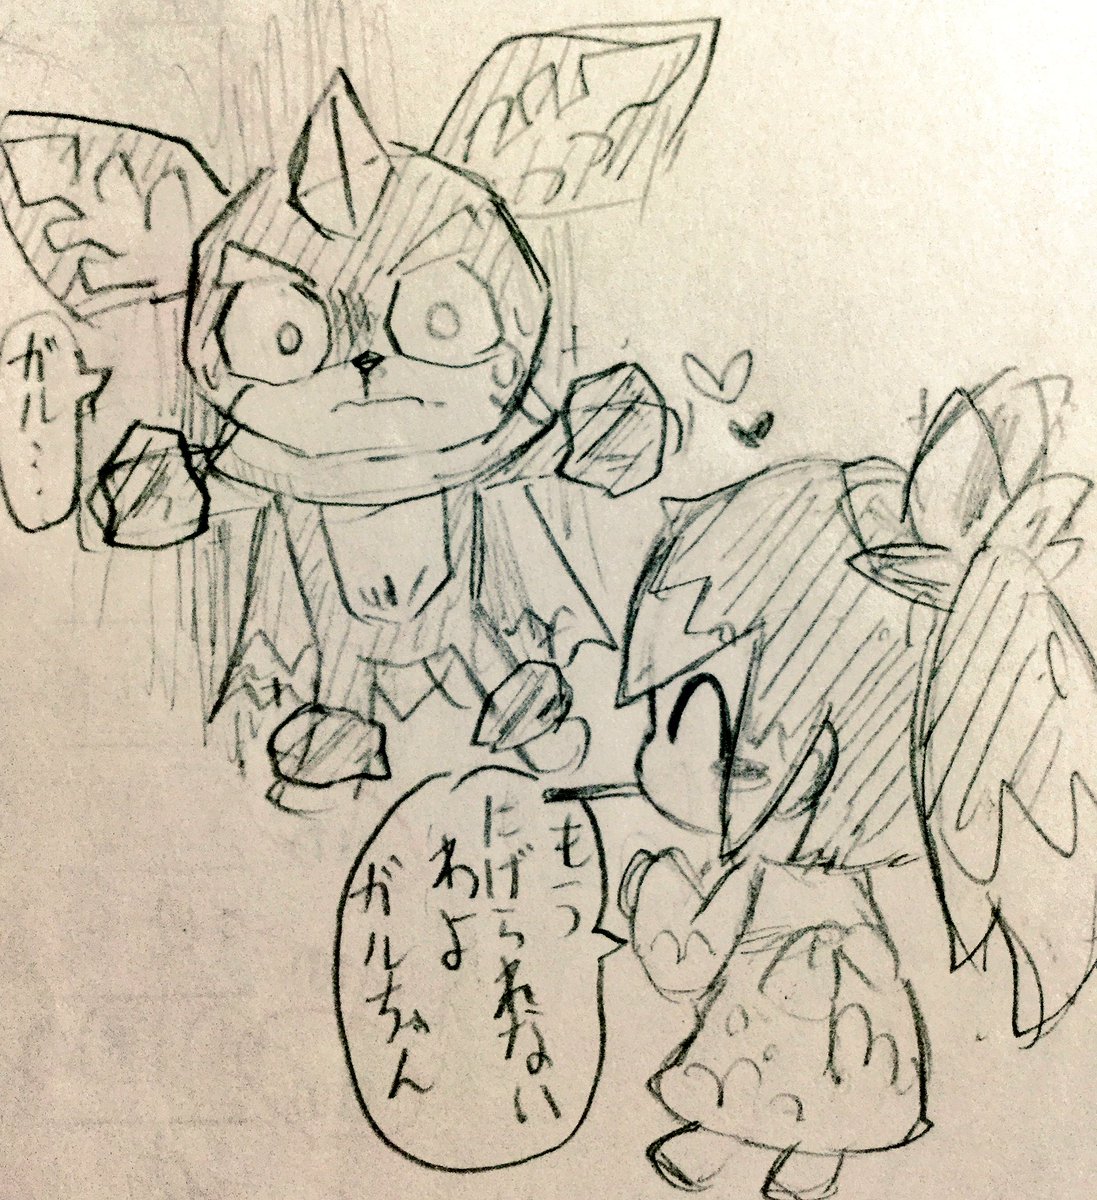 ガル…
もう
にげられない
わよ
ガルちゃん